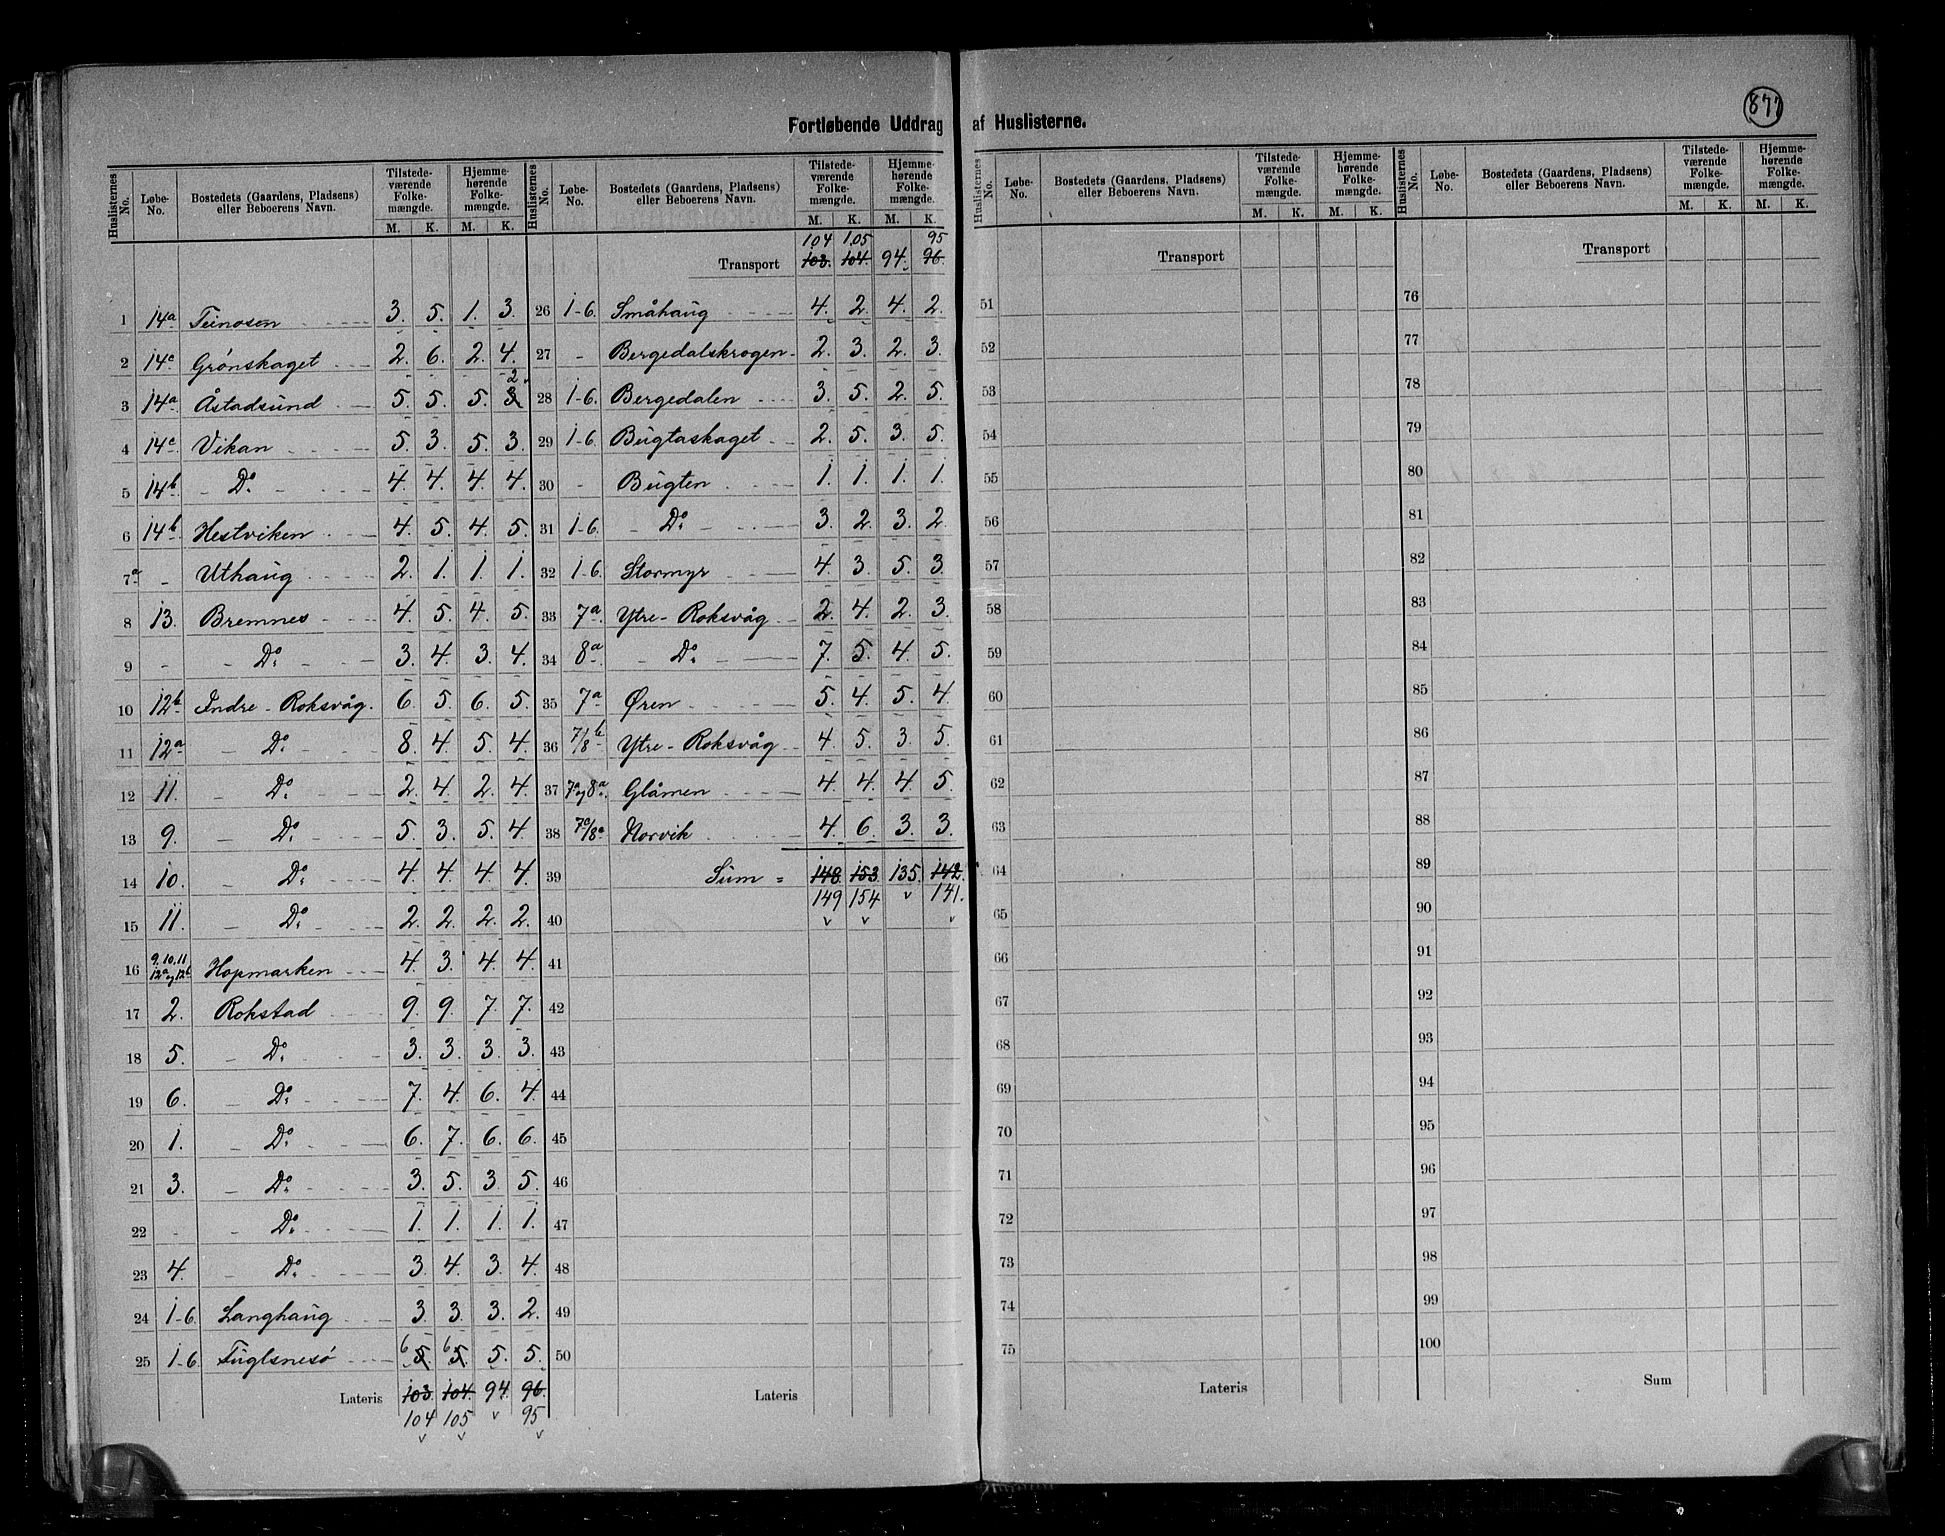 877
Fortløbende Uddrag af Huslisterne.
Huslisternes No. | Løbe-No. | Bostedets (Gaardens, Pladsens) eller Beboerens Navn. | Tilstedeværende Folkemængde. M. K. | Hjemmehørende Folkemængde. M. K.
1 14a Teinosen 3. 5. 1. 3.
2 14c Grønskaget 2. 6. 2. 4.
3 14a Åstadsund 5. 5. 5. 3 2
4 14c Vikan 5. 3. 5. 3.
5 14b - Do - 4. 4. 4. 4.
6 14b Hestviken 4. 5. 4. 5.
7a - Uthaug 2. 1. 1. 1.
8 13. Bremnes 4. 5. 4. 5.
9 - - Do - 3. 4. 3. 4.
10 12b Indre-Roksvåg. 6. 5. 6. 5.
11 12a - Do - 8. 4. 5. 4.
12 11. - Do - 2. 4. 2. 4.
13 9. - Do - 5. 3. 5. 4.
14 10. - Do - 4. 4. 4. 4.
15 11. - Do - 2. 2. 2. 2.
16 9.10.11 12a og 12b Hopmarken 4. 3. 4. 4.
17 2. Rokstad 9. 9. 7. 7.
18 5. - Do - 3. 3. 3. 3.
19 6. - Do - 7. 4. 6. 4.
20 1. - Do - 6. 7. 6. 6.
21 3. - Do - 3. 5. 3. 5.
22 - - Do - 1. 1. 1. 1.
23 4. - Do - 3. 4. 3. 4.
24 1-6. Langhaug 3. 3. 3. 2.
25 1-6. Fuglsnesö 6 5. 6 5. 5. 5.
Lateris 103. 104. 94. 96.
104 105 v 95
v v v
Huslisternes No. | Løbe-No. | Bostedets (Gaardens, Pladsens) eller Beboerens Navn. | Tilstedeværende Folkemængde. M. K. | Hjemmehørende Folkemængde. M. K.
104 105 95
Transport 103. 104. 94. 96.
26 1-6. Småhaug 4. 2. 4. 2.
27 - Bergedalskrogen 2. 3. 2. 3.
28 1-6. Bergedalen 3. 5. 2. 5.
29 1-6. Bugtaskaget 2. 5. 3. 5.
30 - Bugten 1. 1. 1. 1.
31 1-6. - Do - 3. 2. 3. 2.
32 1-6. Stormyr 4. 3. 5. 3.
33 7a Ytre-Roksvåg 2. 4. 2. 3.
34 8a - Do - 7. 5. 4. 5.
35 7a Øren 5. 4. 5. 4.
36 7/8b Ytre-Roksvåg 4. 5. 3. 5.
37 7a og 8a Glåmen 4. 4. 4. 5.
38 7a/8a Norvik 4. 6. 3. 3.
39 Sum = 148. 153. 135. 142.
149 154 v 141.
40 v v v
41
42
43
44
45
46
47
48
49
50
Lateris
Huslisternes No. | Løbe-No. | Bostedets (Gaardens, Pladsens) eller Beboerens Navn. | Tilstedeværende Folkemængde. M. K. | Hjemmehørende Folkemængde. M. K.
Transport
51
52
53
54
55
56
57
58
59
60
61
62
63
64
65
66
67
68
69
70
71
72
73
74
75
Lateris
Huslisternes No. | Løbe-No. | Bostedets (Gaardens, Pladsens) eller Beboerens Navn. | Tilstedeværende Folkemængde. M. K. | Hjemmehørende Folkemængde. M. K.
Transport
76
77
78
79
80
81
82
83
84
85
86
87
88
89
90
91
92
93
94
95
96
97
98
99
100
Sum